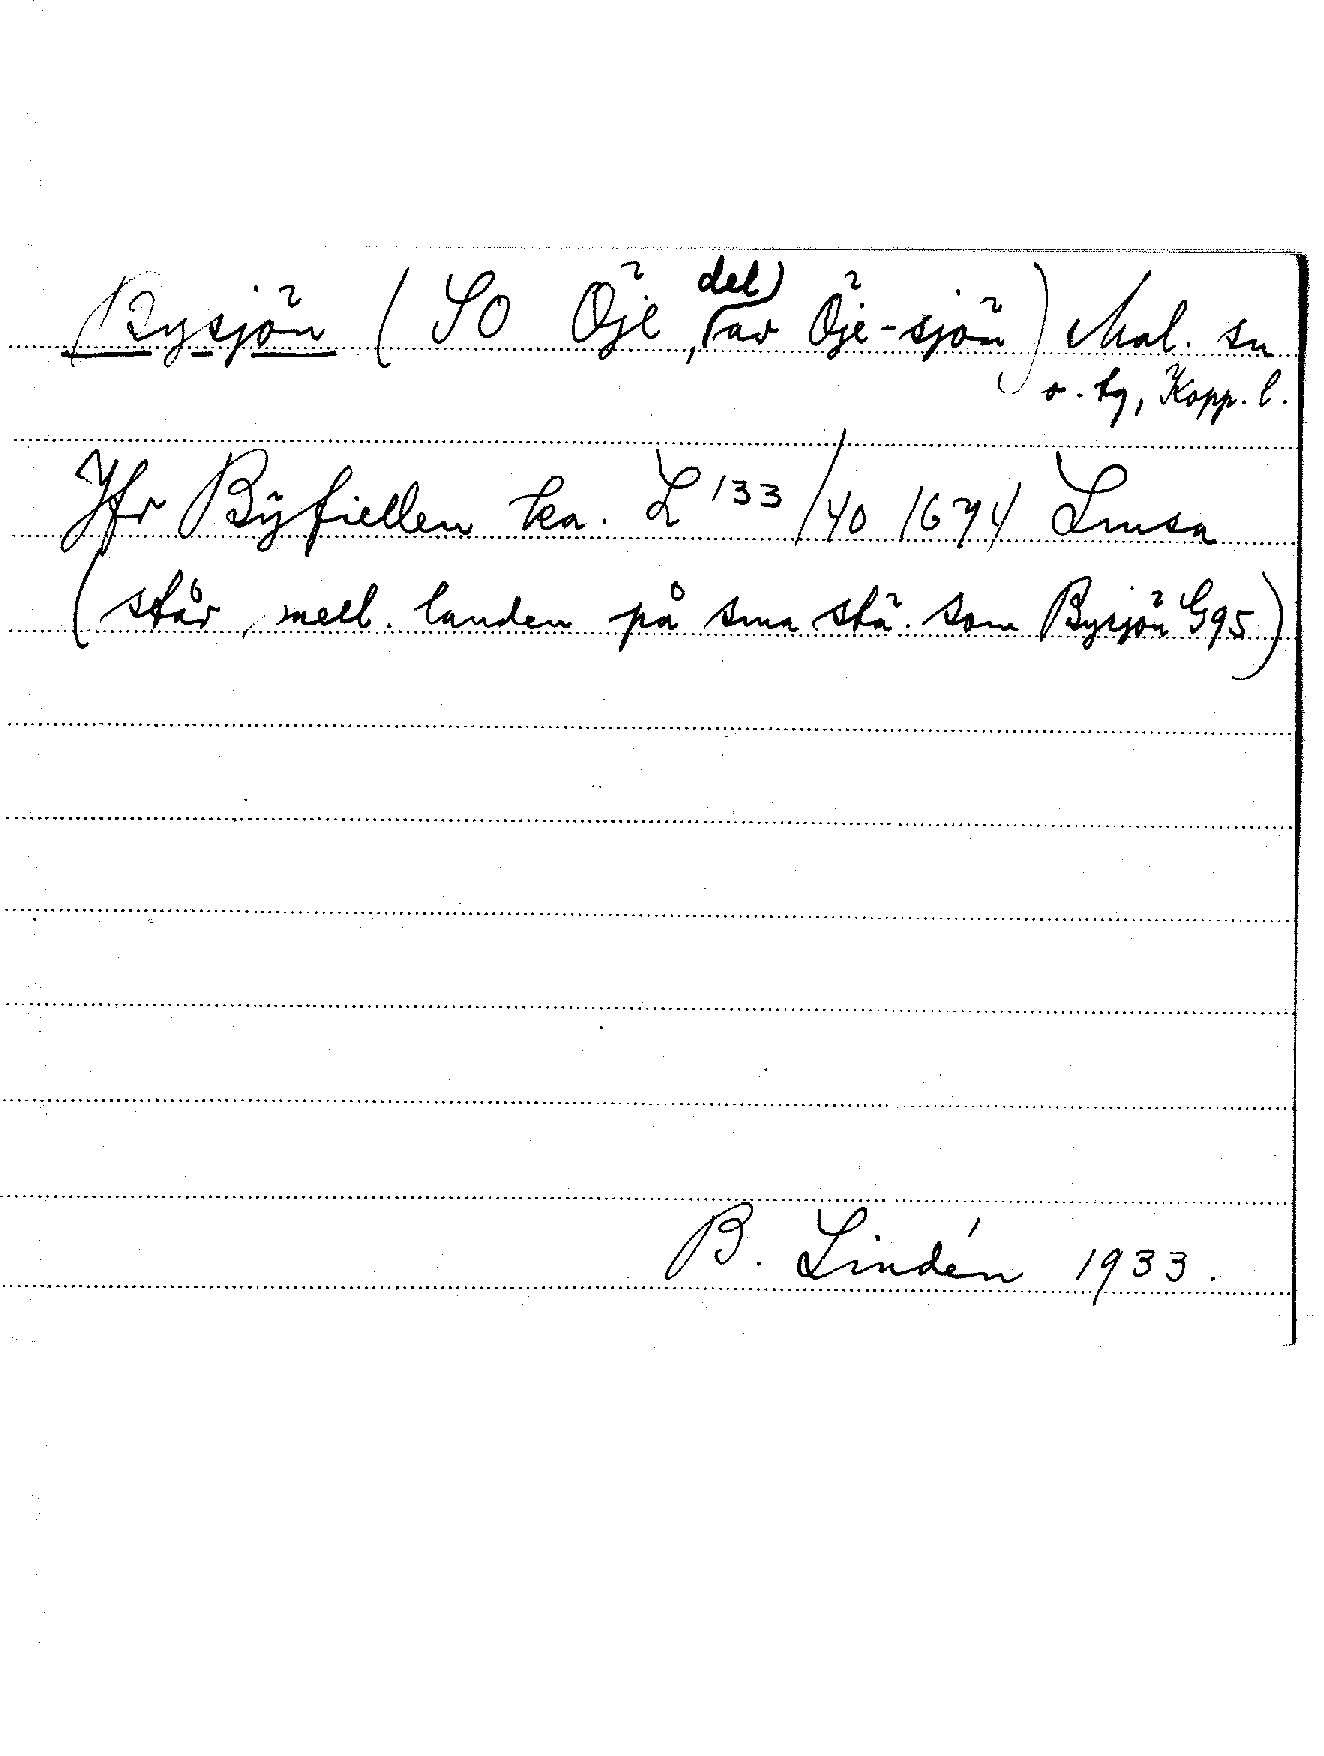 Bysjön (SO Öje, del av Öje-sjön) Mal. sn
o. tg, Kopp. l.
Jfr Bÿfiellen ka. L 133/40 1674 Limsa
(står mell. landen på sma stä. som Bysjön G95)
B. Lindén 1933.